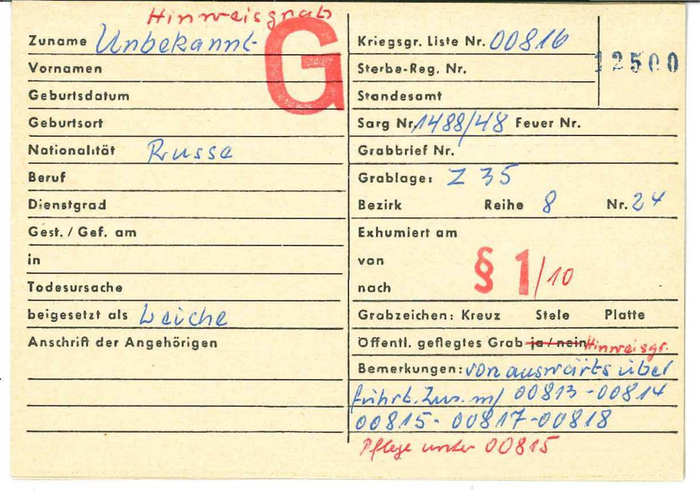 Hinweisgrab
Zuname Unbekannt
Vornamen
Geburtsdatum
Geburtsort
Nationalität Russe
Beruf
Dienstgrad
Gest. / Gef. am
in
Todesursache
beigesetzt als Leiche
Anschrift der Angehörigen
G
Kriegsgr. Liste Nr. 00816
12500
Sterbe-Reg. Nr.
Standesamt
Sarg Nr. 1488/48 Feuer Nr.
Grabbrief Nr.
Grablage: Z 35
Bezirk Reihe 8 Nr. 24
Exhumiert am
von
nach
§ 1/10
Grabzeichen: Kreuz Stele Platte
Öffentl. geflegtes Grab ja / nein Hinweisgr.
Bemerkungen: von auswärts über
führt. Zus. m/ 00813-00814
00815-00817-00818
Pflege unter 00815